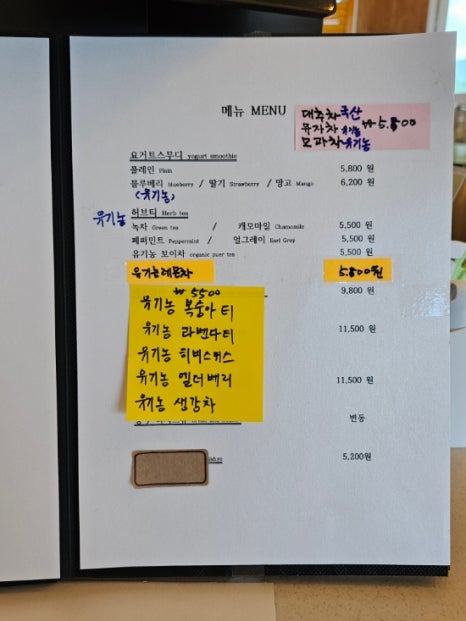 메뉴 MENU
대추차 국산
유자차 유기농 ₩5.800
모과차 유기농
요거트스무디 yogurt smoothie
플레인 Plain 5,800 원
블루베리 blueberry / 딸기 Strawberry / 망고 Mango 6,200 원
(유기농)
유기농 허브티 Herb tea
녹차 Green tea / 캐모마일 Chamomile 5,500 원
페퍼민트 Peppermint / 얼그레이 Earl Grey 5,500 원
유기농 보이차 organic puer tea 5,500 원
유기농레몬차 5.800원
9,800 원
₩5500
유기농 복숭아 티
유기농 라벤다티
11,500 원
유기농 히비스커스
유기농 엘더베리
11,500 원
유기농 생강차
변동
5,200원